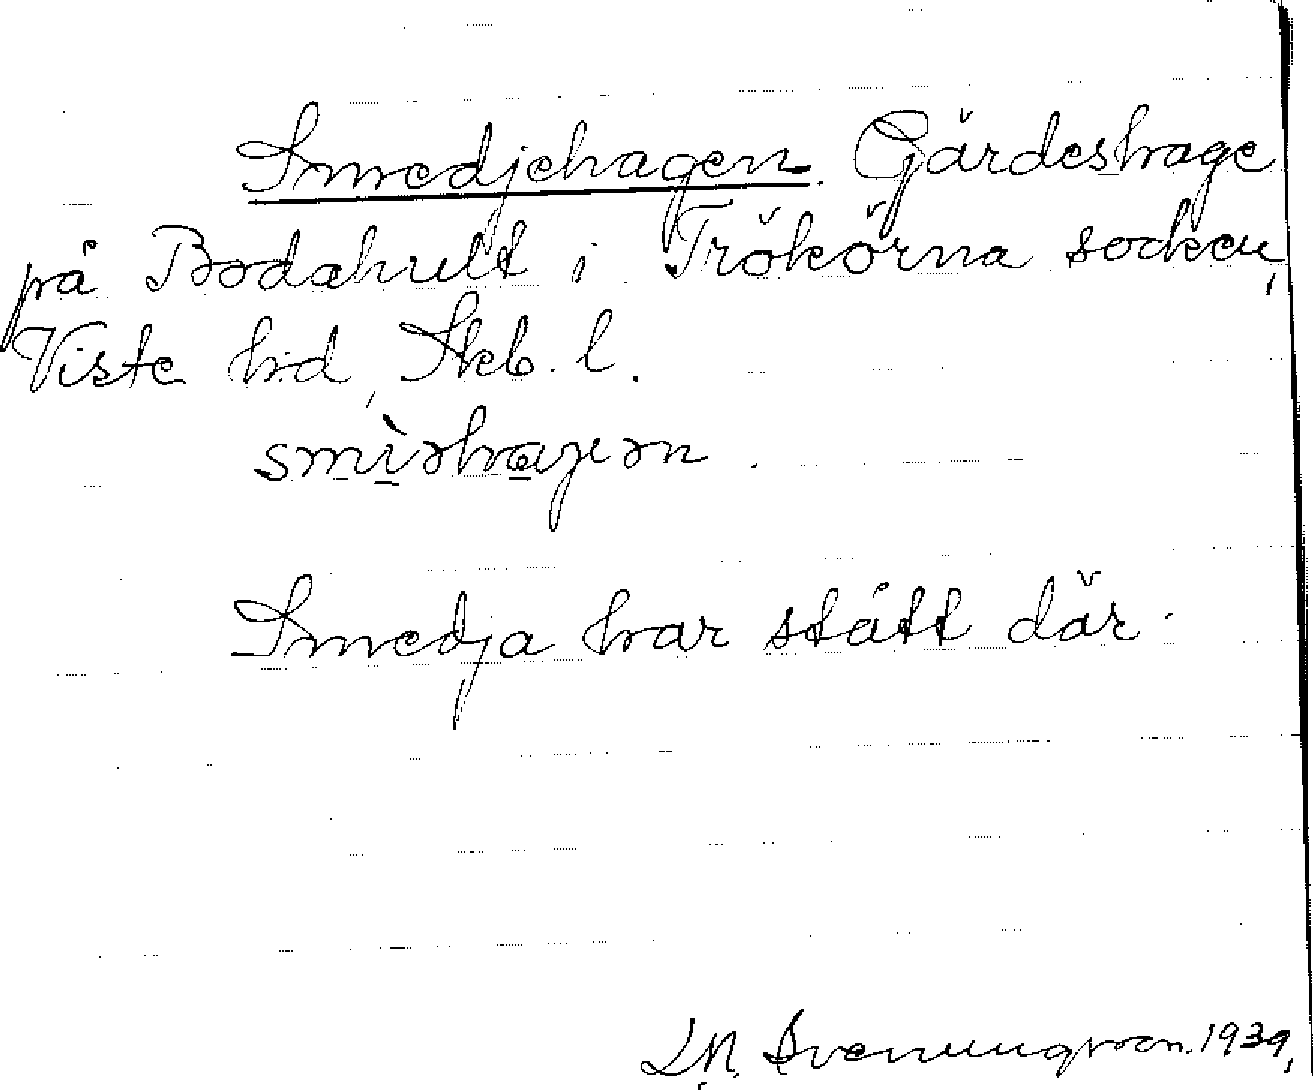 Smedjehagen. Gärdeshage
på Bodahult i Trökörna socken,
Viste hd, Skb. l.
Smedja har stått där.
Svenungsson. 1939.